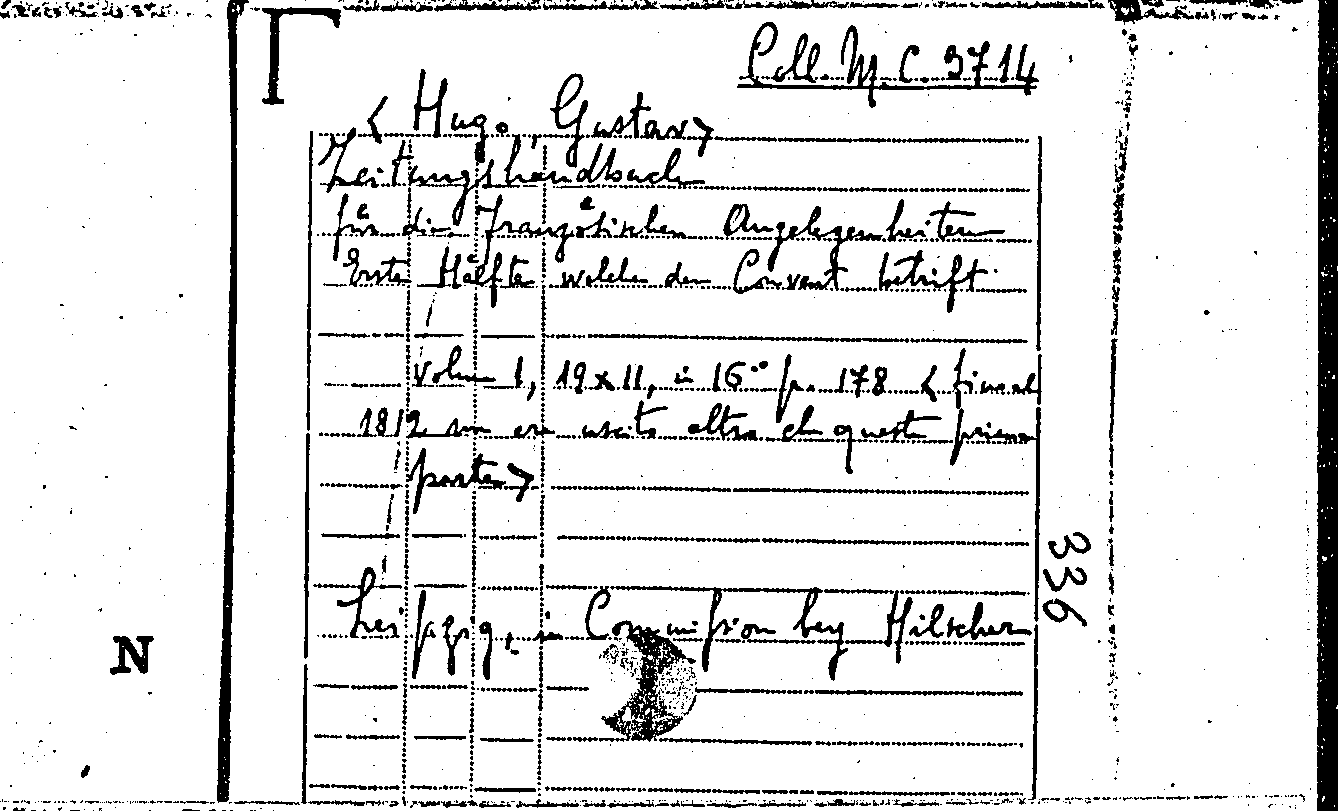 Coll. M. C. 3714
< Hugo, Gustav >
Zeitungshandbuch
für die französischen Angelegenheiten
Erste Hälfte welche den Convent betrift.
volume 1, 19x11, in 16° p. 178 < fino al
1812 non era uscita altra che questa prima
parte >
336
Leipzig, in Commission bey Hilscher
N